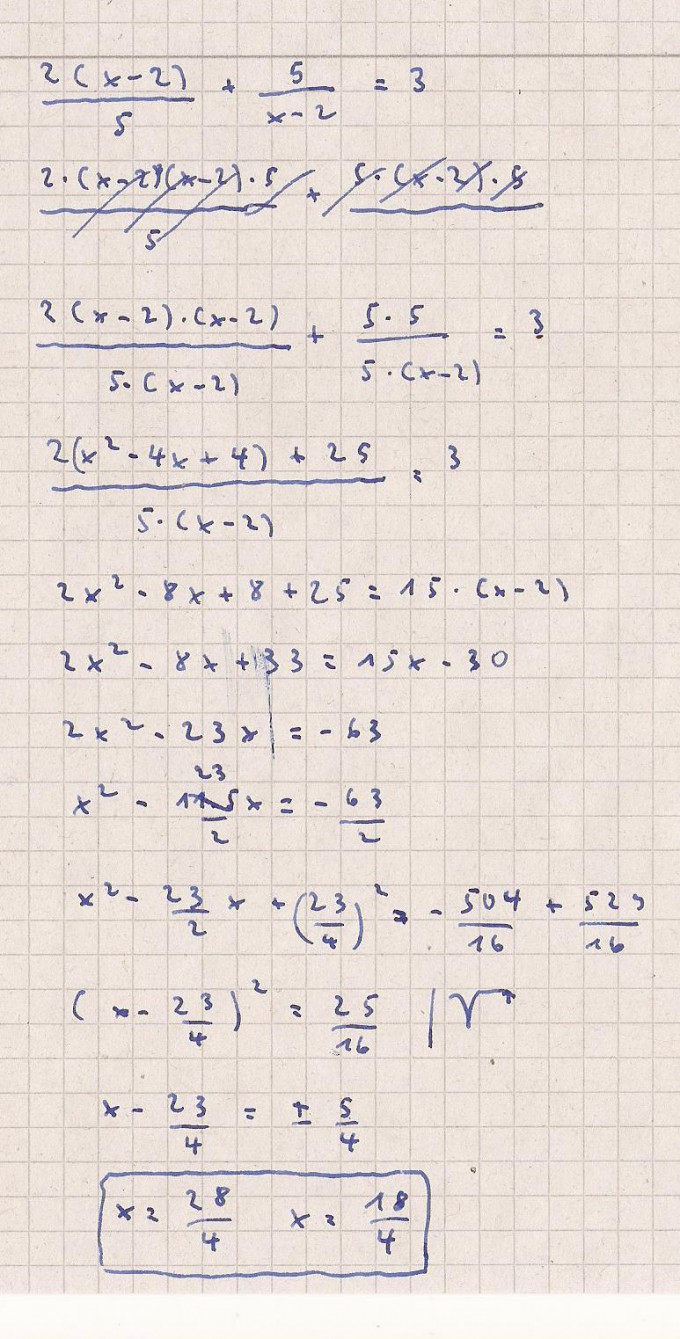 2(x-2)/5 + 5/(x-2) = 3
2·(x-2)(x-2)·5/5 + 5·(x-2)·5
2(x-2)·(x-2)/5·(x-2) + 5·5/5·(x-2) = 3
2(x²-4x+4)+25/5·(x-2) = 3
2x²-8x+8+25=15·(x-2)
2x²-8x+33=15x-30
2x²-23x=-63
x²-23/2x=-63/2
x²-23/2x+(23/4)²=-504/16+529/16
(x-23/4)²=25/16 |√
x-23/4=±5/4
x=28/4 x=18/4